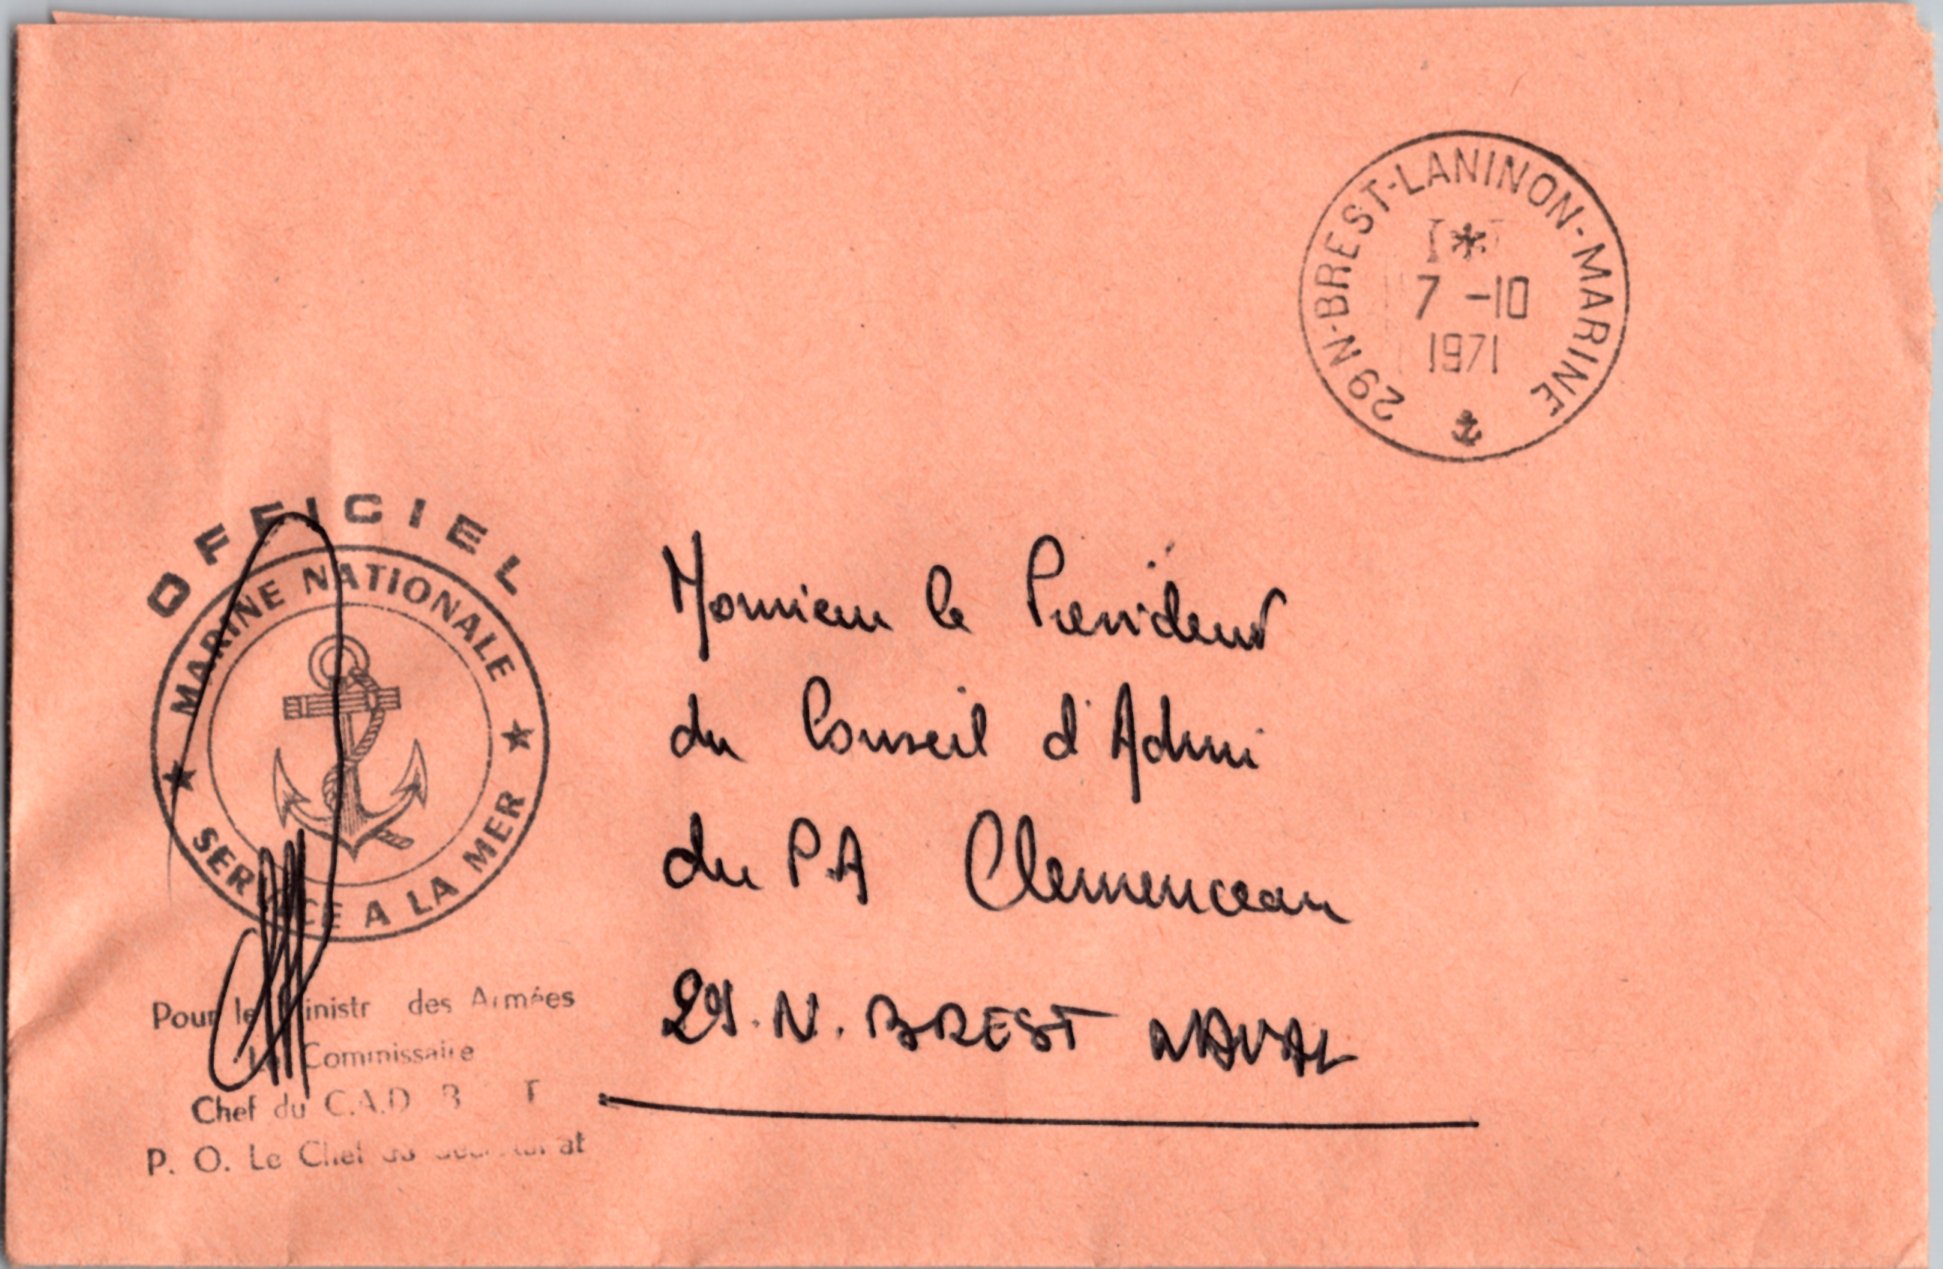 29 N-BREST-LANINON-MARINE
7 -10
1971
OFFICIEL
MARINE NATIONALE
SERVICE A LA MER
Monsieur le President
du Conseil d'Admi
du P.A Clemenceau
29. N. BREST NAVAL
Pour le Ministr des Armées
Le Commissaire
Chef du C.A.D B T
P. O. Le Chef du